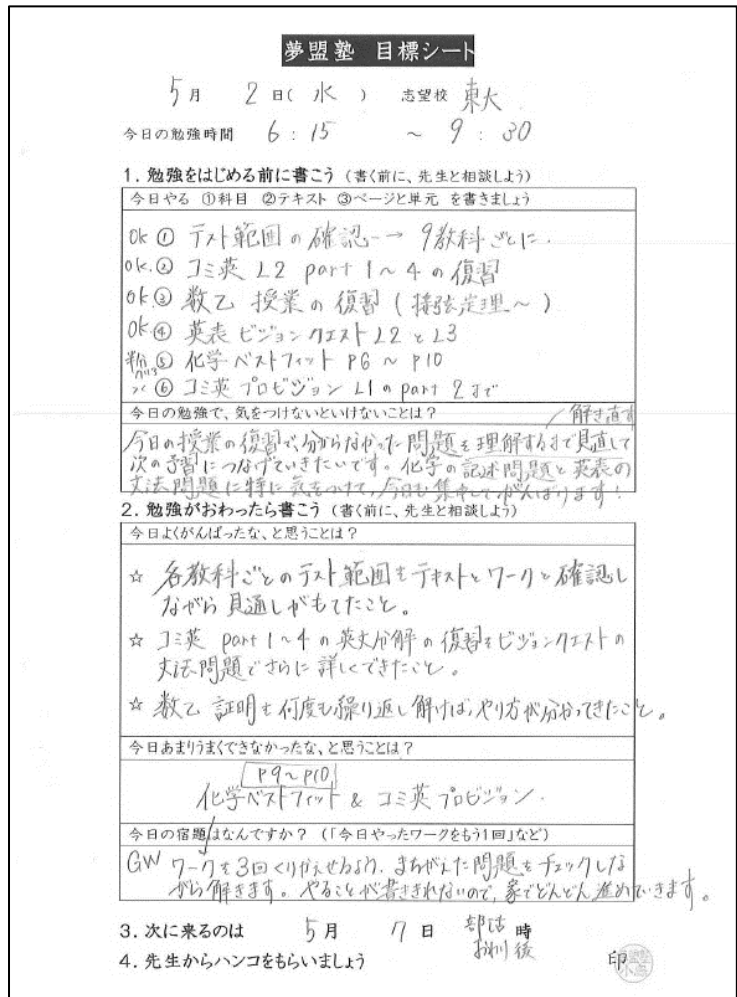 夢盟塾 目標シート
5月 2日( 水 ) 志望校 東大
今日の勉強時間 6:15 ~ 9:30
1. 勉強をはじめる前に書こう (書く前に、先生と相談しよう)
今日やる ①科目 ②テキスト ③ページと単元 を書きましょう
OK ① テスト範囲の確認 → 9教科ごとに.
OK. ② コミ英 L2 part 1~4 の復習
OK ③ 数乙 授業の復習 (接弦定理~)
OK. ④ 英表 ビジョンクエスト L2 と L3
⑤ 化学 ベストフィット P6 ~ P10
⑥ コミ英 プロビジョン L1 の part 2 まで
今日の勉強で、気をつけないといけないことは?
解き直す
今日の授業の復習で、分からなかった問題を理解するまで見直して
次の予習につなげていきたいです。化学の記述問題と英表の
文法問題に特に気をつけて、今日も集中してがんばります!
2. 勉強がおわったら書こう (書く前に、先生と相談しよう)
今日よくがんばったな、と思うことは?
☆ 各教科ごとのテスト範囲をテキストとワークと確認し
ながら見通しがもてたこと。
☆ コミ英 part 1~4 の英文分解の復習をビジョンクエストの
文法問題でさらに詳しくできたこと。
☆ 数乙 証明も何度も繰り返し解けば、やり方が分かってきたこと。
今日あまりうまくできなかったな、と思うことは?
P9~P10
化学ベストフィット & コミ英 プロビジョン.
今日の宿題はなんですか? (「今日やったワークをもう1回」など)
GW ワークを3回くりかえせるよう、まちがえた問題をチェックしな
がら解きます。やることが書ききれないので、家でどんどん進めていきます。
3. 次に来るのは 5月 7日 部活おわり後 時
4. 先生からハンコをもらいましょう 印